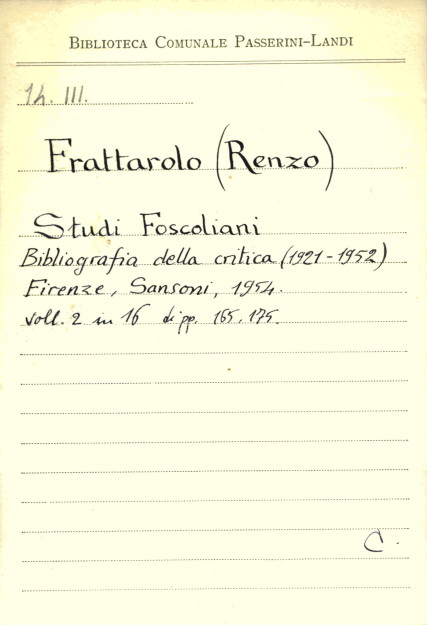 BIBLIOTECA COMUNALE PASSERINI-LANDI
14. III.
Frattarolo (Renzo)
Studi Foscoliani
Bibliografia della critica (1921-1952)
Firenze, Sansoni, 1954.
voll. 2 in 16 di pp. 165, 175.
C.